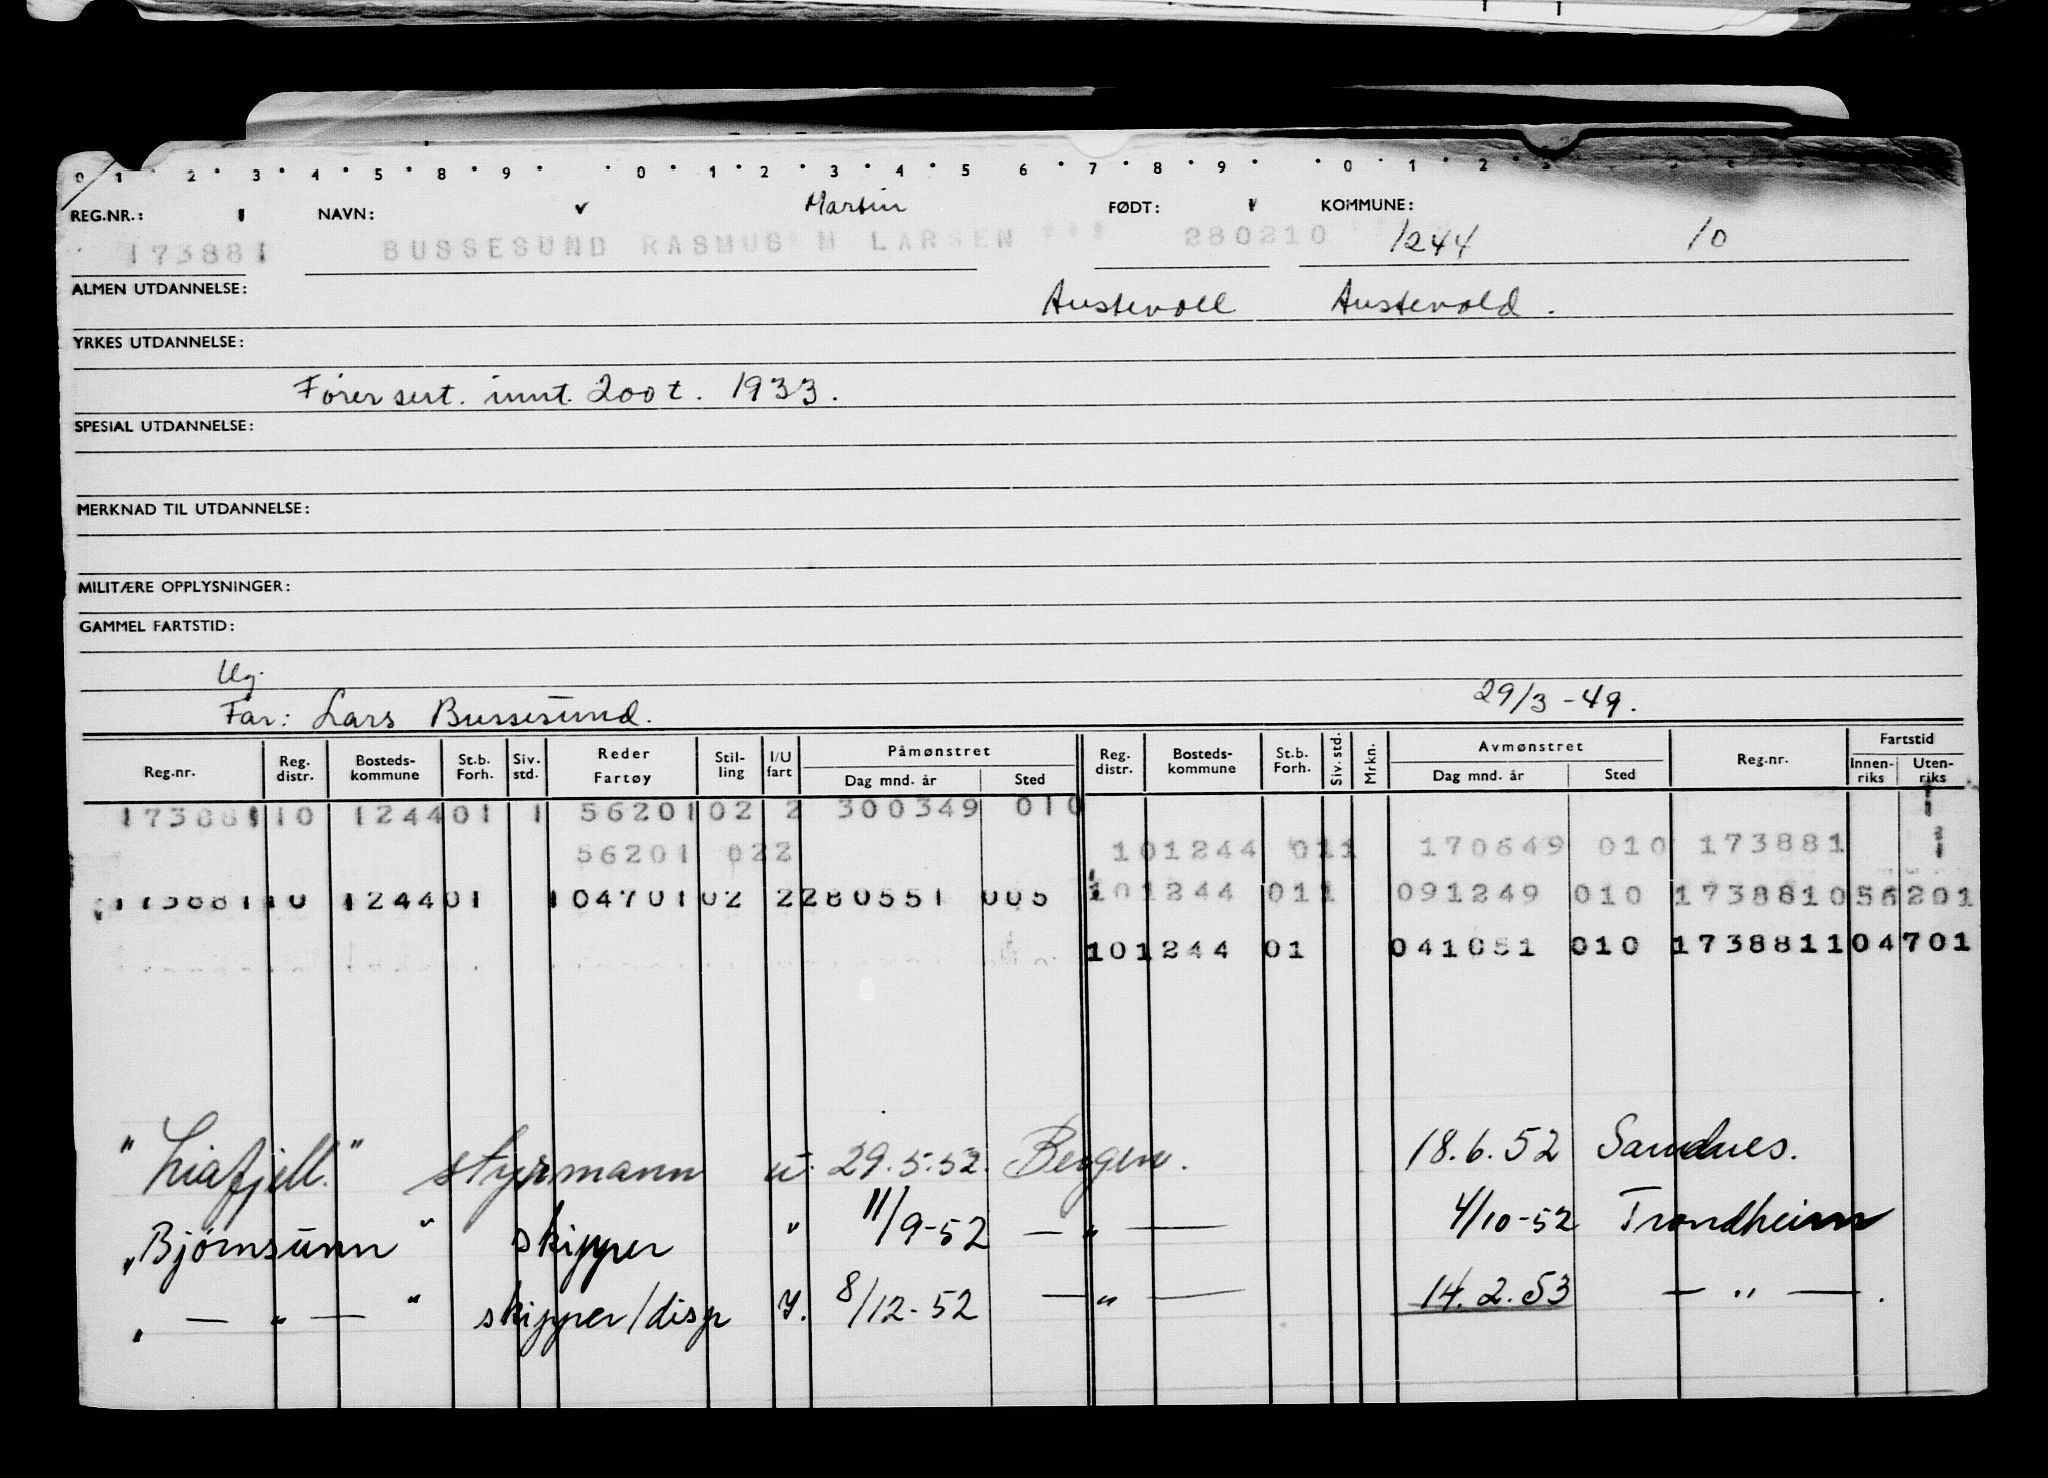 0 1 2 3 4 5 8 9 0 1 2 3 4 5 6 7 8 9 0 1 2
REG.NR.: NAVN: Martin FØDT: KOMMUNE:
173881 BUSSESUND RASMUS M LARSEN *** 280210 1244 10
ALMEN UTDANNELSE: Austevoll Austevold.
YRKES UTDANNELSE:
Førersert. innt. 200 t. 1933.
SPESIAL UTDANNELSE:
MERKNAD TIL UTDANNELSE:
MILITÆRE OPPLYSNINGER:
GAMMEL FARTSTID:
Ug.
Far: Lars Bussesund. 29/3 - 49.
Reg.nr. Reg. distr. Bosteds-kommune St.b. Forh. Siv. std. Reder Fartøy Stil-ling I/U fart Påmønstret Dag mnd. år Sted Reg. distr. Bosteds-kommune St.b. Forh. Siv. std. Mrkn. Avmønstret Dag mnd. år Sted Reg.nr. Fartstid Innen-riks Uten-riks
173881 10 1244 01 1 56201 02 2 300349 010
56201 022 101244 011 170649 010 173881
173881 10 1244 01 104701 02 2 280551 005 101244 011 091249 010 173881 056201
101244 01 041051 010 173881 104701
"Liafjell." styrmann u. 29.5.52. Bergen. 18.6.52 Sandnes.
"Bjørnsunn" skipper " 11/9-52 — " — 4/10-52 Trondheim
" — " — " skipper/disp Y. 8/12-52 — " — 14.2.53 — " — .